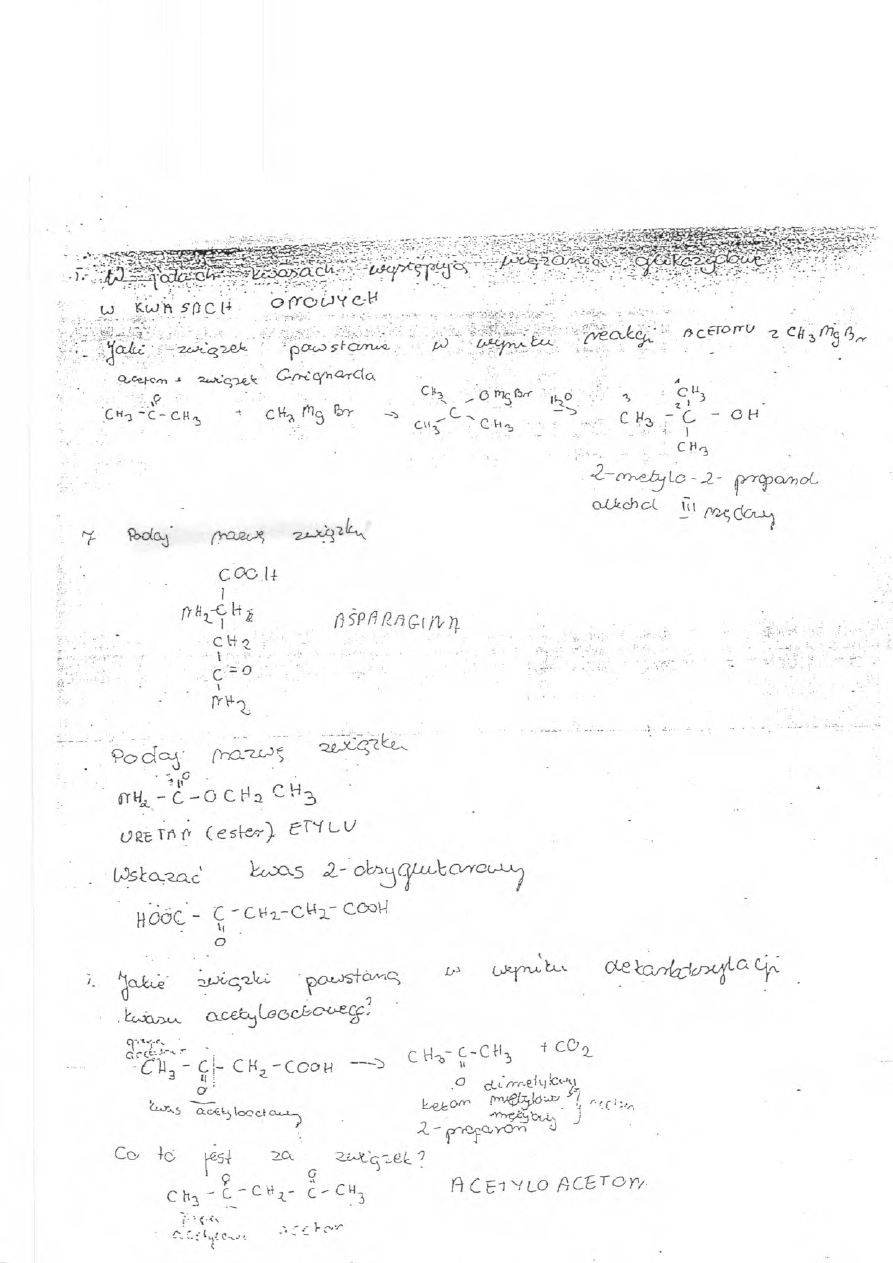 W jakich kwasach występują wiązania glikozydowe
W KWASACH ONOWYCH
Jaki związek powstanie w wyniku reakcji ACETONU z CH3MgBr
aceton + związek Grignarda
O
CH3 - C - CH3 + CH3 Mg Br → CH3 CH3 C OMgBr CH3 H2O → CH3 - C - OH
CH3
CH3
2-metylo-2-propanol
alkohol III rzędowy
7 Podaj nazwę związku
COOH
NH2-CH2
CH2
C=O
NH2
ASPARAGINA
Podaj nazwę związku
O
NH2 - C - OCH2 CH3
URETAN (ester) ETYLU
Wskazać kwas 2-oksyglutarowy
HOOC - C - CH2-CH2-COOH
O
Jakie związki powstaną w wyniku dekarboksylacji
kwasu acetylooctowego?
CH3 - C - CH2-COOH → CH3-C-CH3 + CO2
O O
kwas acetylooctowy
dimetylowy
keton metylowo
metylowy
2-propanon
Co to jest za związek?
O O
CH3 - C - CH2 - C - CH3 ACETYLOACETON
aceton